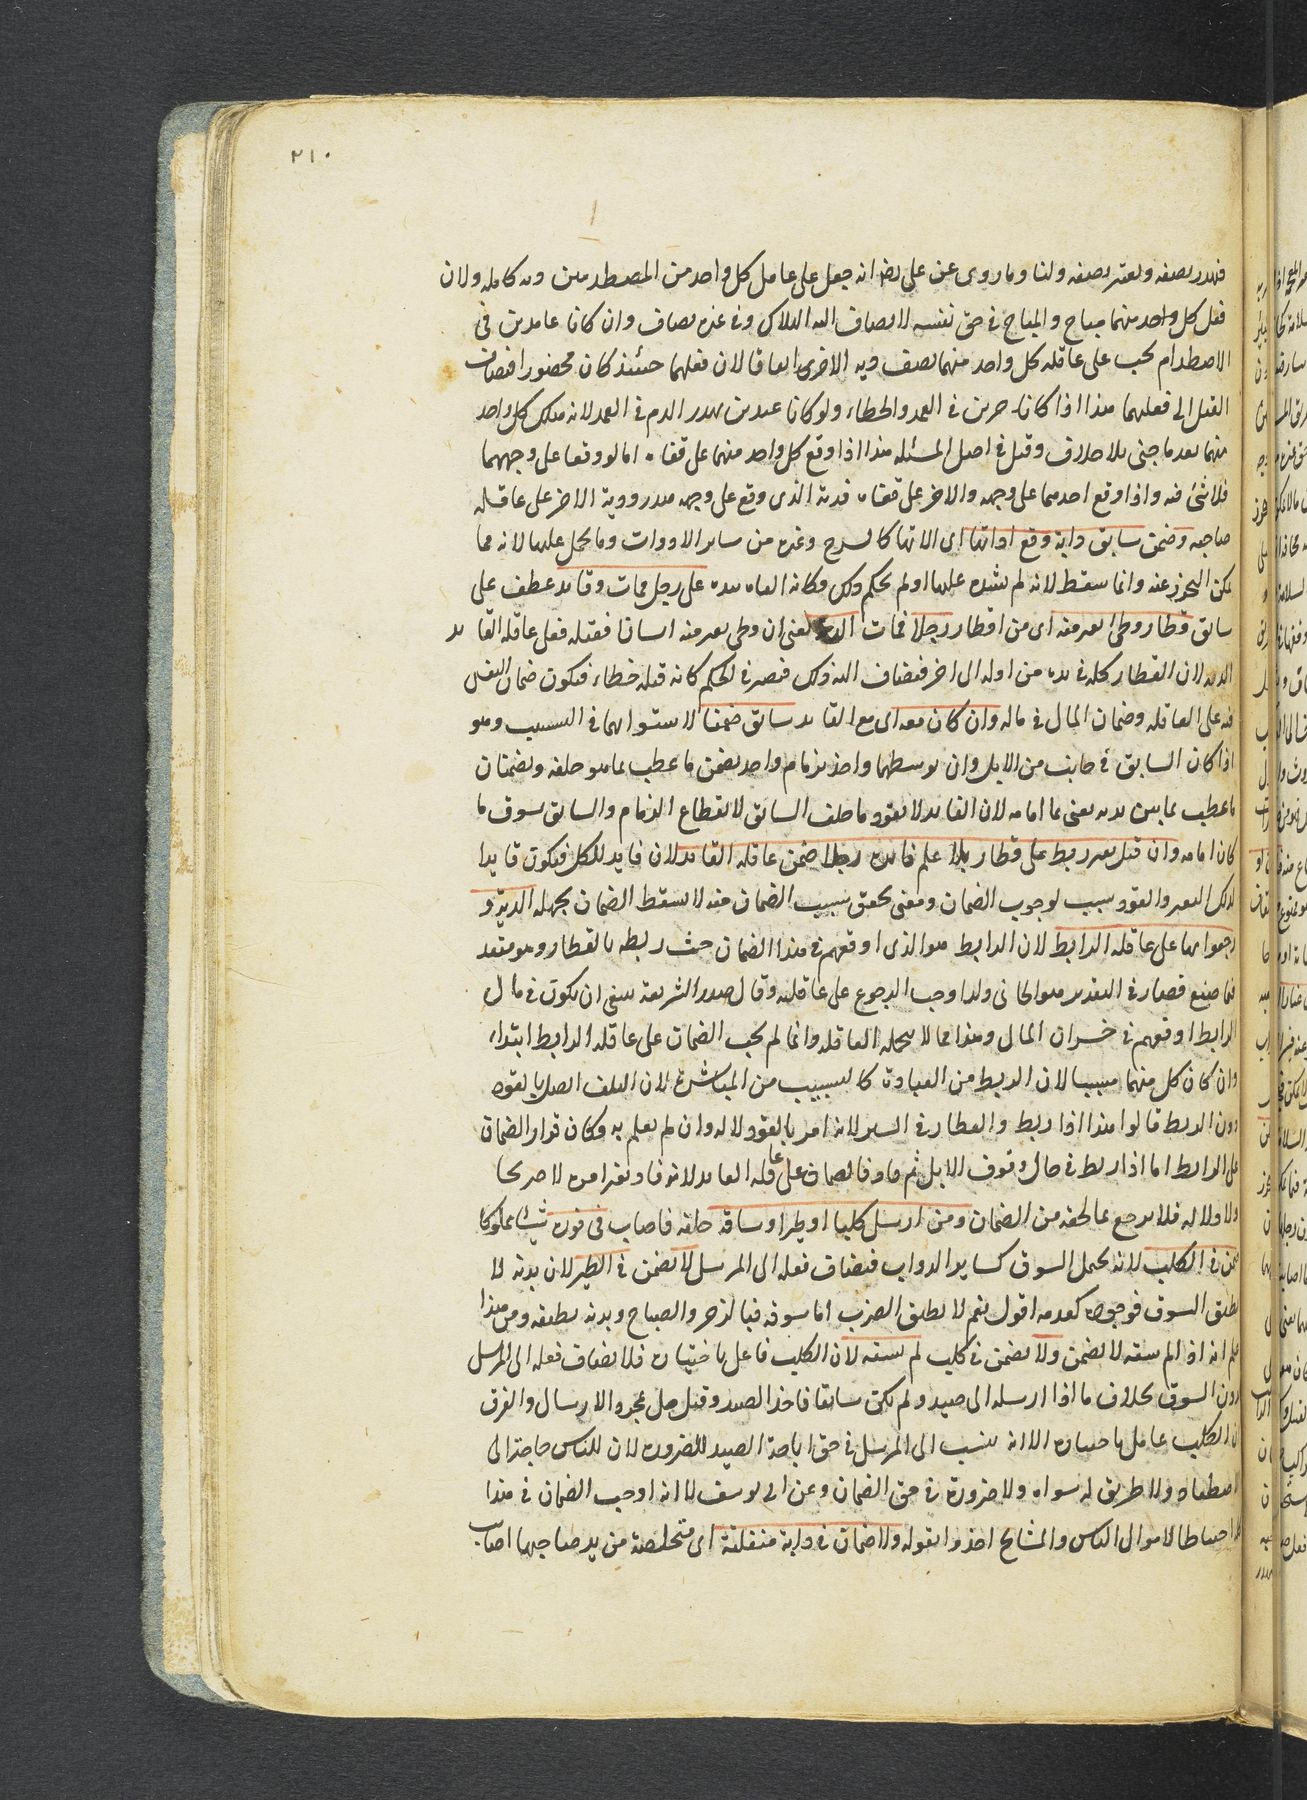 ٢١٠
فهدر نصفه ويعتبر نصفه ولنا وما روى عن على رض انه جعل على عامل كل واحد من المصطدمين ديه كامله ولان
فعل كل واحد منهما مباح والمباح فى حق نفسه لا يضاف اليه الهلاك وفى غيره يضاف وان كانا عامدين فى
الاصطدام يجب على عاقله كل واحد منهما نصف ديه الاخرى اتفاقا لان فعلهما حينئذ كان محظورا فيضاف
القتل الى فعلهما هذا اذا كانا حرين فى العمد والخطاء ولو كانا عبدين يهدر الدم فى العمد لانه هلك كل واحد
منهما بعد ما جنى بلا خلاف وقيل فى اصل المسئله هذا اذا وقع كل واحد منهما على قفاه اما لو وقعا على وجههما
فلا شئ فيه واذا وقع احدهما على وجهه والاخر على قفاه فدية الذى وقع على وجهه هدر ودية الاخر على عاقله
صاحبه وضمن سايق دابة وقع اداتها اى الاتها كالسرج وغيره من ساير الادوات وما يحمل عليها لانه مما
يمكن التحرز عنه وانما سقط لانه لم يشده عليها او لم يحكم ذلك فكانه القاه بيده على رجل فمات وقايد عطف على
سايق قطار وطئ بعير منه اى من اقطار رجلا فمات الدية يعنى ان وطى بعير منه انسانا فقتله فعلى عاقله القايد
الديه لان القطار كله فى يده من اوله الى اخره فيضاف اليه ذلك فيصير فى الحكم كانه قتله خطاء فيكون ضمان النفس
فيه على العاقله وضمان المال فى ماله وان كان معه اى مع القايد سايق ضمنا لاستوائهما فى التسبيب وهو
اذا كان السايق فى جانب من الابل وان توسطهما واخذ بزمام واحد يضمن ما عطب بما هو خلفه ويضمنان
ما عطب بما بين يديه يعنى بما امامه لان القايد لا يقود ما خلف السايق لانقطاع الزمام والسايق يسوق ما
كان امامه وان قتل بعير ربط على قطار بلا علم قايده رجلا ضمن عاقله القايد لان قايد للكل فيكون قايدا
لذلك البعير والقود سبب لوجوب الضمان ومتى تحقق سبب الضمان منه لا يسقط الضمان بجهله الدية و
رجعوا بها على عاقله الرابط لان الرابط هو الذى اوقعهم فى هذا الضمان حيث ربطه بالقطار وهو متعد
فيما صنع فصار فى التقدير هو الجانى ولذا وجب الرجوع على عاقلته وقال صدر الشريعة ينبغى ان يكون فى مال
الرابط اوقعهم فى خسران المال وهذا مما لا يتحمله العاقله وانما لم يجب الضمان على عاقله الرابط ابتداء
وان كان كل منهما مسببا لان الربط من القيادة كالتسبيب من المباشرة لان التلف اتصل بالقود
دون الربط قالوا هذا اذا ربط والقطار فى السير لانه امر بالقود لاله وان لم يعلم به فكان قرار الضمان
على الرابط اما اذا ربط فى حال وقوف الابل ثم قاد فالضمان على عاقله القايد لانه قاد بغير امره لا صريحا
ولا دلاله فلا يرجع بما لحقه من الضمان ومن ارسل كلبا او طيرا وساقه خلفه فاصاب فى فوره شيئا مملوكا
ضمن فى الكلب لانه يحمل السوق كساير الدواب فيضاف فعله الى المرسل لا يضمن فى الطير لان بدنه لا
يطيق السوق فوجوده كعدمه اقول نعم لا يطيق الضرب اما سوقه فبالزجر والصياح وبدنه يطيقه ومن هذا
علم انه اذا لم يسقه لا يضمن ولا يضمن فى كلب لم يسقه لان الكلب فاعل باختياره فلا يضاف فعله الى المرسل
بدون السوق بخلاف ما اذا ارسله الى صيد ولم يكن سايقا فاخذ الصيد وقتل حل بمجرد الارسال والفرق
ان الكلب عامل باختياره الا انه ينسب الى المرسل فى حق اباحة الصيد للضروره لان للناس حاجة الى
اصطياده ولا طريق له سواه ولا ضرورة فى حق الضمان وعن ابى يوسف انه اوجب الضمان فى هذا
كله احتياطا لاموال الناس والمشايخ اخذوا بقوله ولا ضمان فى دابة منفلتة اى متخلصة من يد صاحبها اصابت